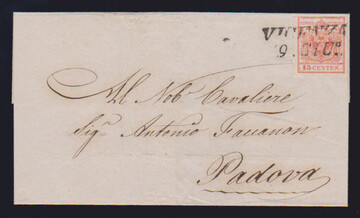 VICENZA
9. GIU.
15 CENTES.
Al Nob. Cavaliere
Sig.r Antonio
Padova